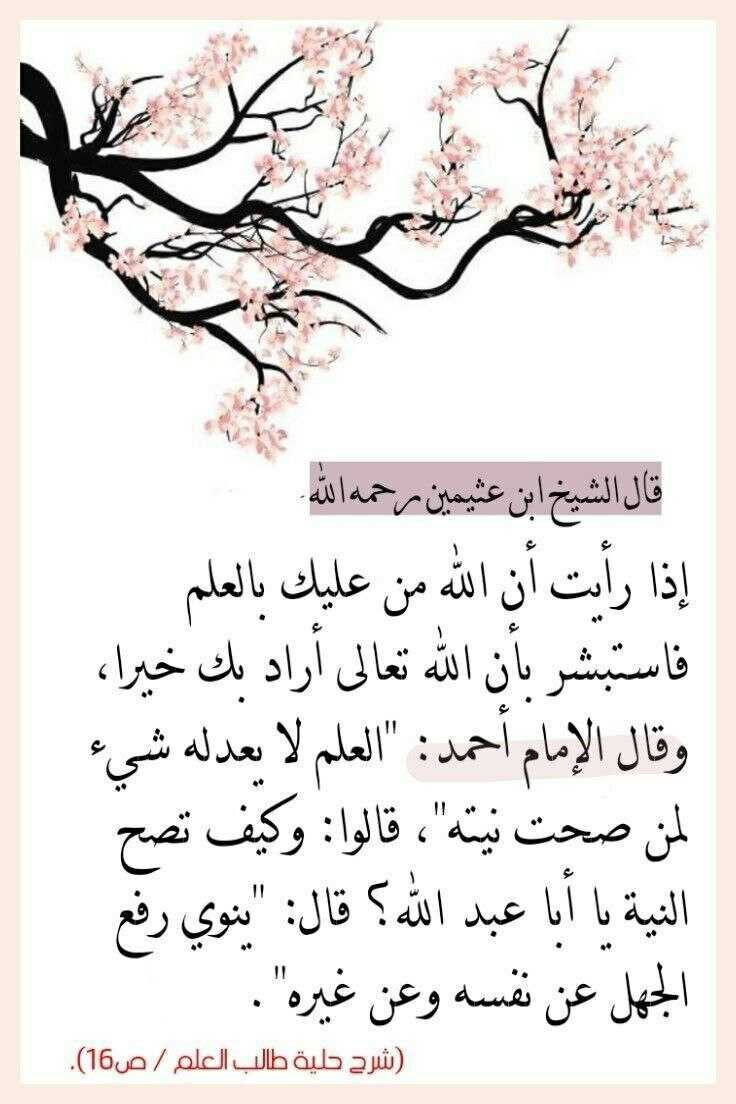 قال الشيخ ابن عثيمين رحمه الله
إذا رأيت أن الله من عليك بالعلم
فاستبشر بأن الله تعالى أراد بك خيرا،
وقال الإمام أحمد: "العلم لا يعدله شيء
لمن صحت نيته"، قالوا: وكيف تصح
النية يا أبا عبد الله؟ قال: "ينوي رفع
الجهل عن نفسه وعن غيره".
(شرح حلية طالب العلم / ص16).